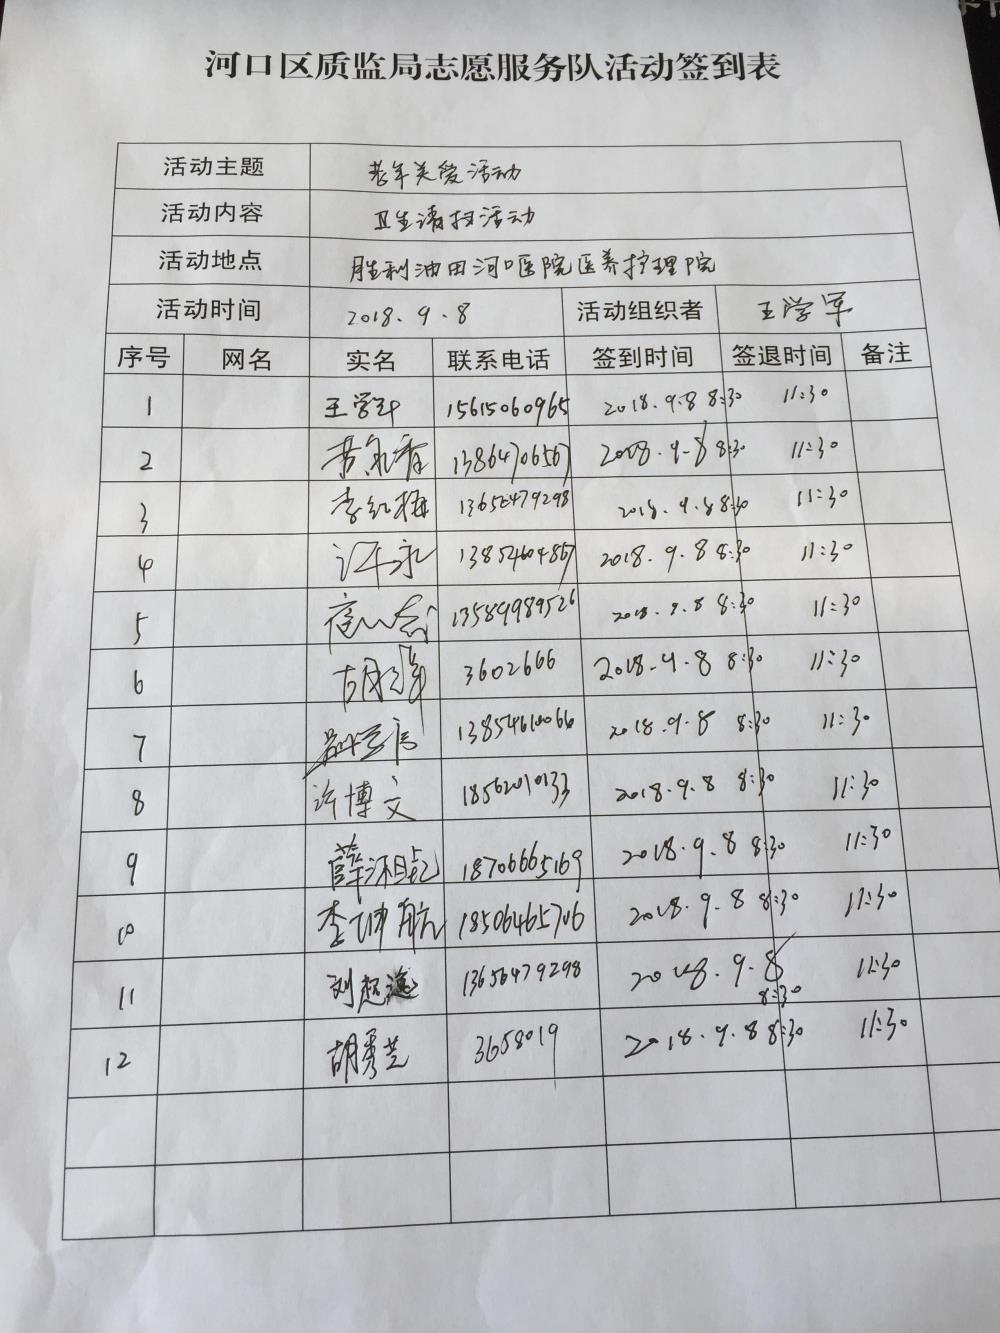 河口区质监局志愿服务队活动签到表
活动主题 老年关爱活动
活动内容 卫生清扫活动
活动地点 胜利油田河口医院医养护理院
活动时间 2018.9.8 活动组织者 王学军
序号 网名 实名 联系电话 签到时间 签退时间 备注
1 王学军 15615060965 2018.9.8 8:30 11:30
2 13864706567 2018.9.8 8:30 11:30
3 李红梅 13656479298 2018.9.8 8:30 11:30
4 许永 13854604857 2018.9.8 8:30 11:30
5 13589989526 2018.9.8 8:30 11:30
6 3602666 2018.9.8 8:30 11:30
7 13854610066 2018.9.8 8:30 11:30
8 许博文 18562010133 2018.9.8 8:30 11:30
9 18706665169 2018.9.8 8:30 11:30
10 李坤航 18506465706 2018.9.8 8:30 11:30
11 刘超 13656479298 2018.9.8 8:30 11:30
12 胡秀芝 3658019 2018.9.8 8:30 11:30